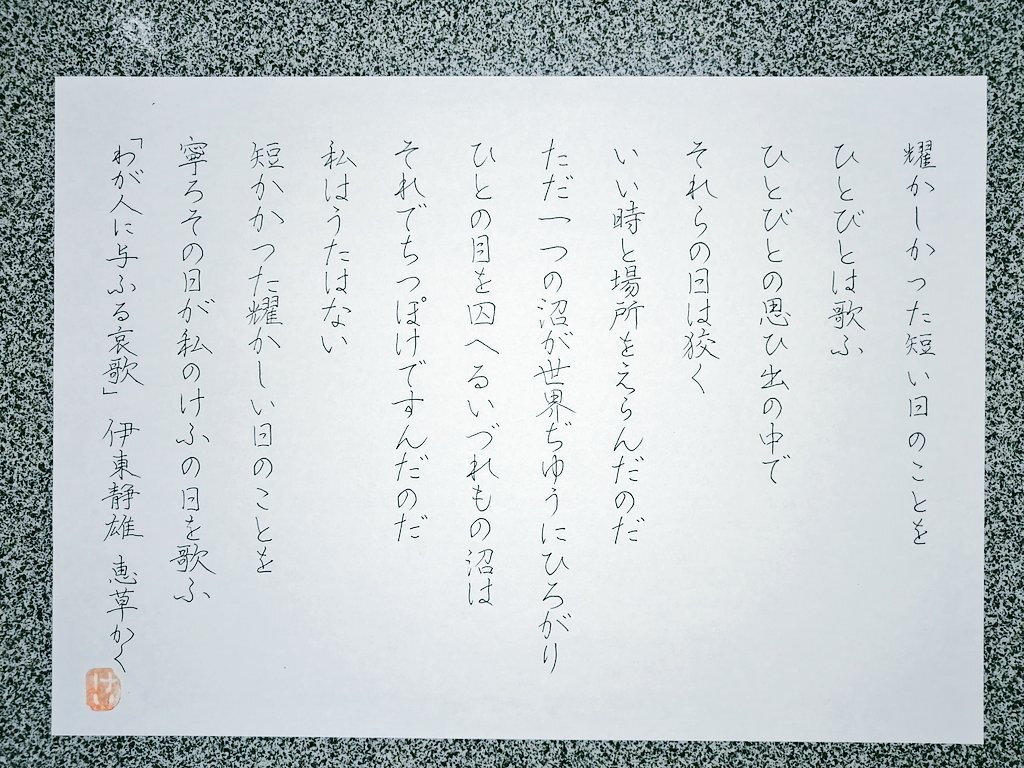 耀かしかつた短い日のことを
ひとびとは歌ふ
ひとびとの思ひ出の中で
それらの日は狡く
いい時と場所をえらんだのだ
ただ一つの沼が世界ぢゆうにひろがり
ひとの目を囚へるいづれもの沼は
それでちつぽけですんだのだ
私はうたはない
短かかつた耀かしい日のことを
寧ろその日が私のけふの日を歌ふ
「わが人に与ふる哀歌」 伊東静雄 恵草かく
けい